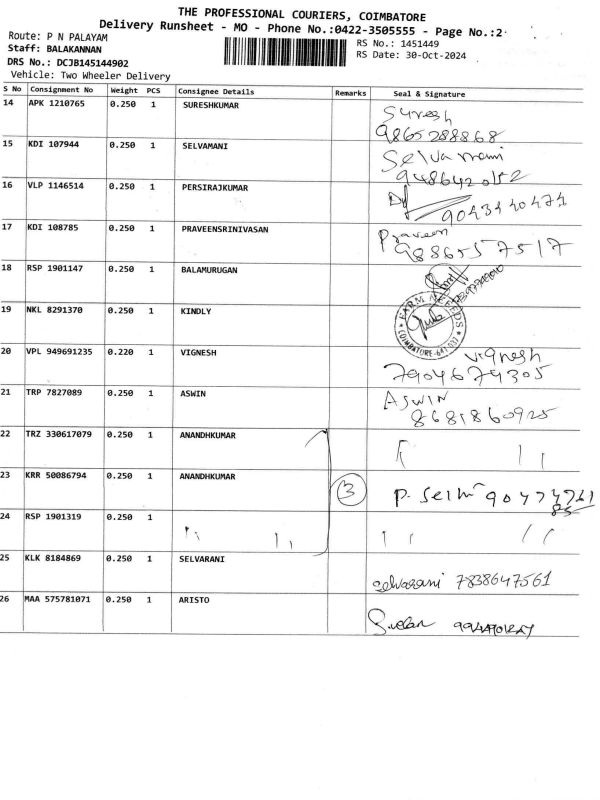 THE PROFESSIONAL COURIERS, COIMBATORE
Delivery Runsheet - MO - Phone No.:0422-3505555 - Page No.:2
Route: P N PALAYAM
RS No.: 1451449
Staff: BALAKANNAN
RS Date: 30-Oct-2024
DRS No.: DCJB145144902
Vehicle: Two Wheeler Delivery
S No Consignment No Weight PCS Consignee Details Remarks Seal & Signature
14 APK 1210765 0.250 1 SURESHKUMAR
Suresh
9865288868
15 KDI 107944 0.250 1 SELVAMANI
Selvamani
16 VLP 1146514 0.250 1 PERSIRAJKUMAR
17 KDI 108785 0.250 1 PRAVEENSRINIVASAN
Praveen
9886557517
18 RSP 1901147 0.250 1 BALAMURUGAN
19 NKL 8291370 0.250 1 KINDLY
COIMBATORE-641 037
20 VPL 949691235 0.220 1 VIGNESH
Vignesh
7904679305
21 TRP 7827089 0.250 1 ASWIN
ASWIN
8681860925
22 TRZ 330617079 0.250 1 ANANDHKUMAR
23 KRR 50086794 0.250 1 ANANDHKUMAR
3
24 RSP 1901319 0.250 1
25 KLK 8184869 0.250 1 SELVARANI
Selvarani 7838647561
26 MAA 575781071 0.250 1 ARISTO